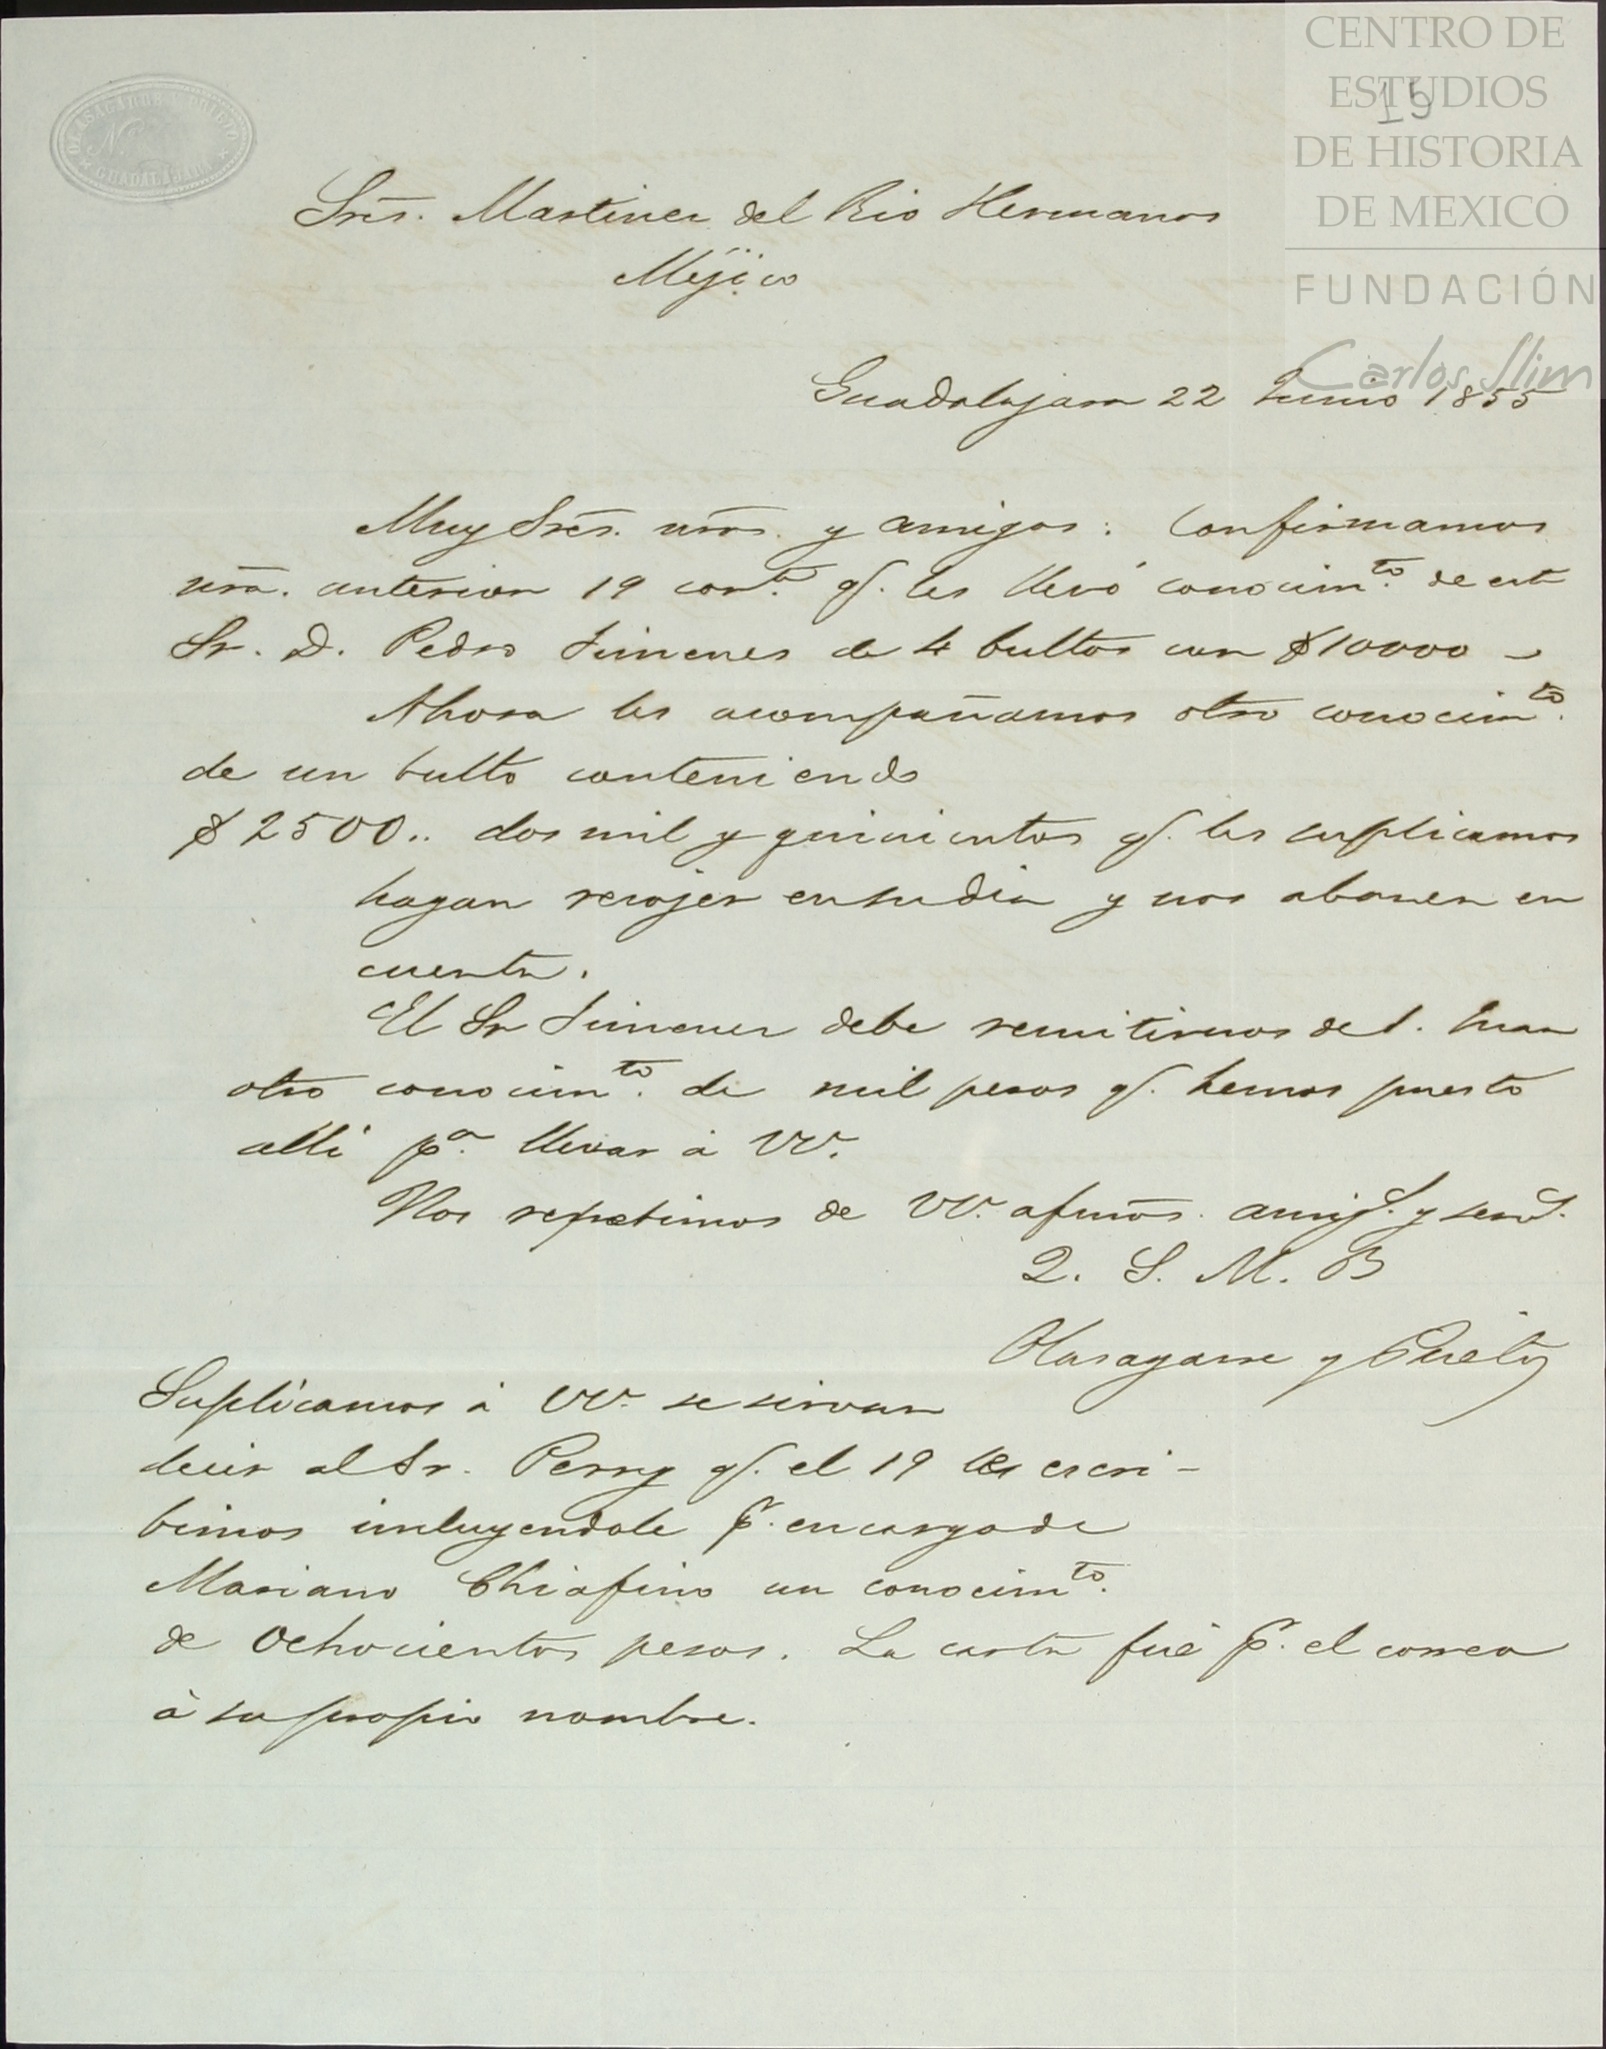 CENTRO DE
ESTUDIOS
DE HISTORIA
DE MEXICO
FUNDACIÓN
Carlos Slim
15
OLASAGARRE Y PRIETO
GUADALAJARA
Sres. Martinez del Rio Hermanos
Méjico
Guadalajara 22 Junio 1855
Muy Sres. nros. y amigos: Confirmamos
nra. anterior 19 corte. q. les llevó conocimto. de este
Sr. D. Pedro Jimenes de 4 bultos con $10000
Ahora les acompañamos otro conocimto.
de un bulto conteniendo
$2500.. dos mil y quinientos q. les suplicamos
hagan recojer en su dia y nos abonen en
cuenta.
El Sr Jimenes debe remitirnos de S. Juan
otro conocimto. de mil pesos q. hemos puesto
alli pa. llevar á VV.
Nos repetimos de VV. afmos. amigs. y servs.
Q. S. M. B
Olasagarre y Prieto
Suplicamos á VV. se sirvan
decir al Sr. Perry q. el 19 le escri-
bimos incluyendole pr. encargo de
Mariano Chiafino un conocimto.
de Ochocientos pesos. La carta fué pr. el correo
á su propio nombre.